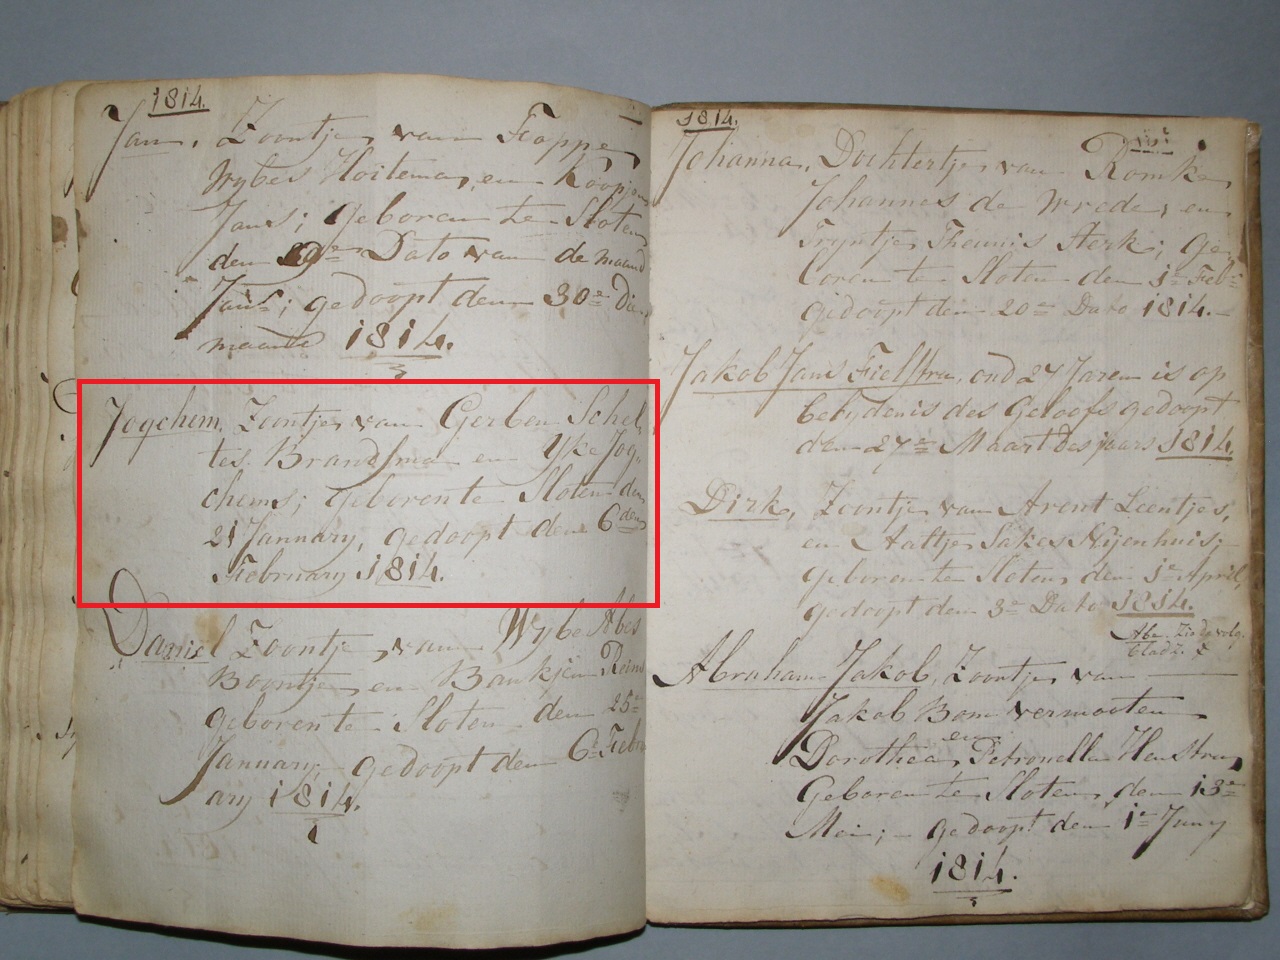 1814.
Jan, Zoontje van Foppe
Wybes Hoitema, en Koopje
Jans; geboren te Sloten
den 10e Dato van de maand
Jan; gedoopt den 30e Dier
maand 1814.
Jogchem, Zoontje van Gerben Schel-
tes Brandsma en Yke Jog-
chems; geboren te Sloten den
21 January, gedoopt den 6den
February 1814.
Daniel Zoontje van Wybe Abes
Boontje en Baukjen Rein
geboren te Sloten den 25e
January, gedoopt den 6e Febru
ary 1814.
1814.
Johanna, Dochtertje van Romke
Johannes de Wrede, en
Tryntje Theunis Sterk; Ge-
boren te Sloten den 3e Feb:
gedoopt den 20e Dato 1814.
Jakob Jans Fielstra, oud 27 Jaren is op
belydenis des Geloofs gedoopt
den 27e Maart des jaars 1814.
Dirk, Zoontje van Arent Leentjes,
en Aaltje Sakes Nijenhuis;
geboren te Sloten den 1e April,
gedoopt den 3e Dato 1814.
Abraham Jakob, Zoontje van
Jakob Bom vermooten
en
Dorothea Petronella Henstra,
Geboren te Sloten, den 13e
Mei; gedoopt den 1e Juny
1814.